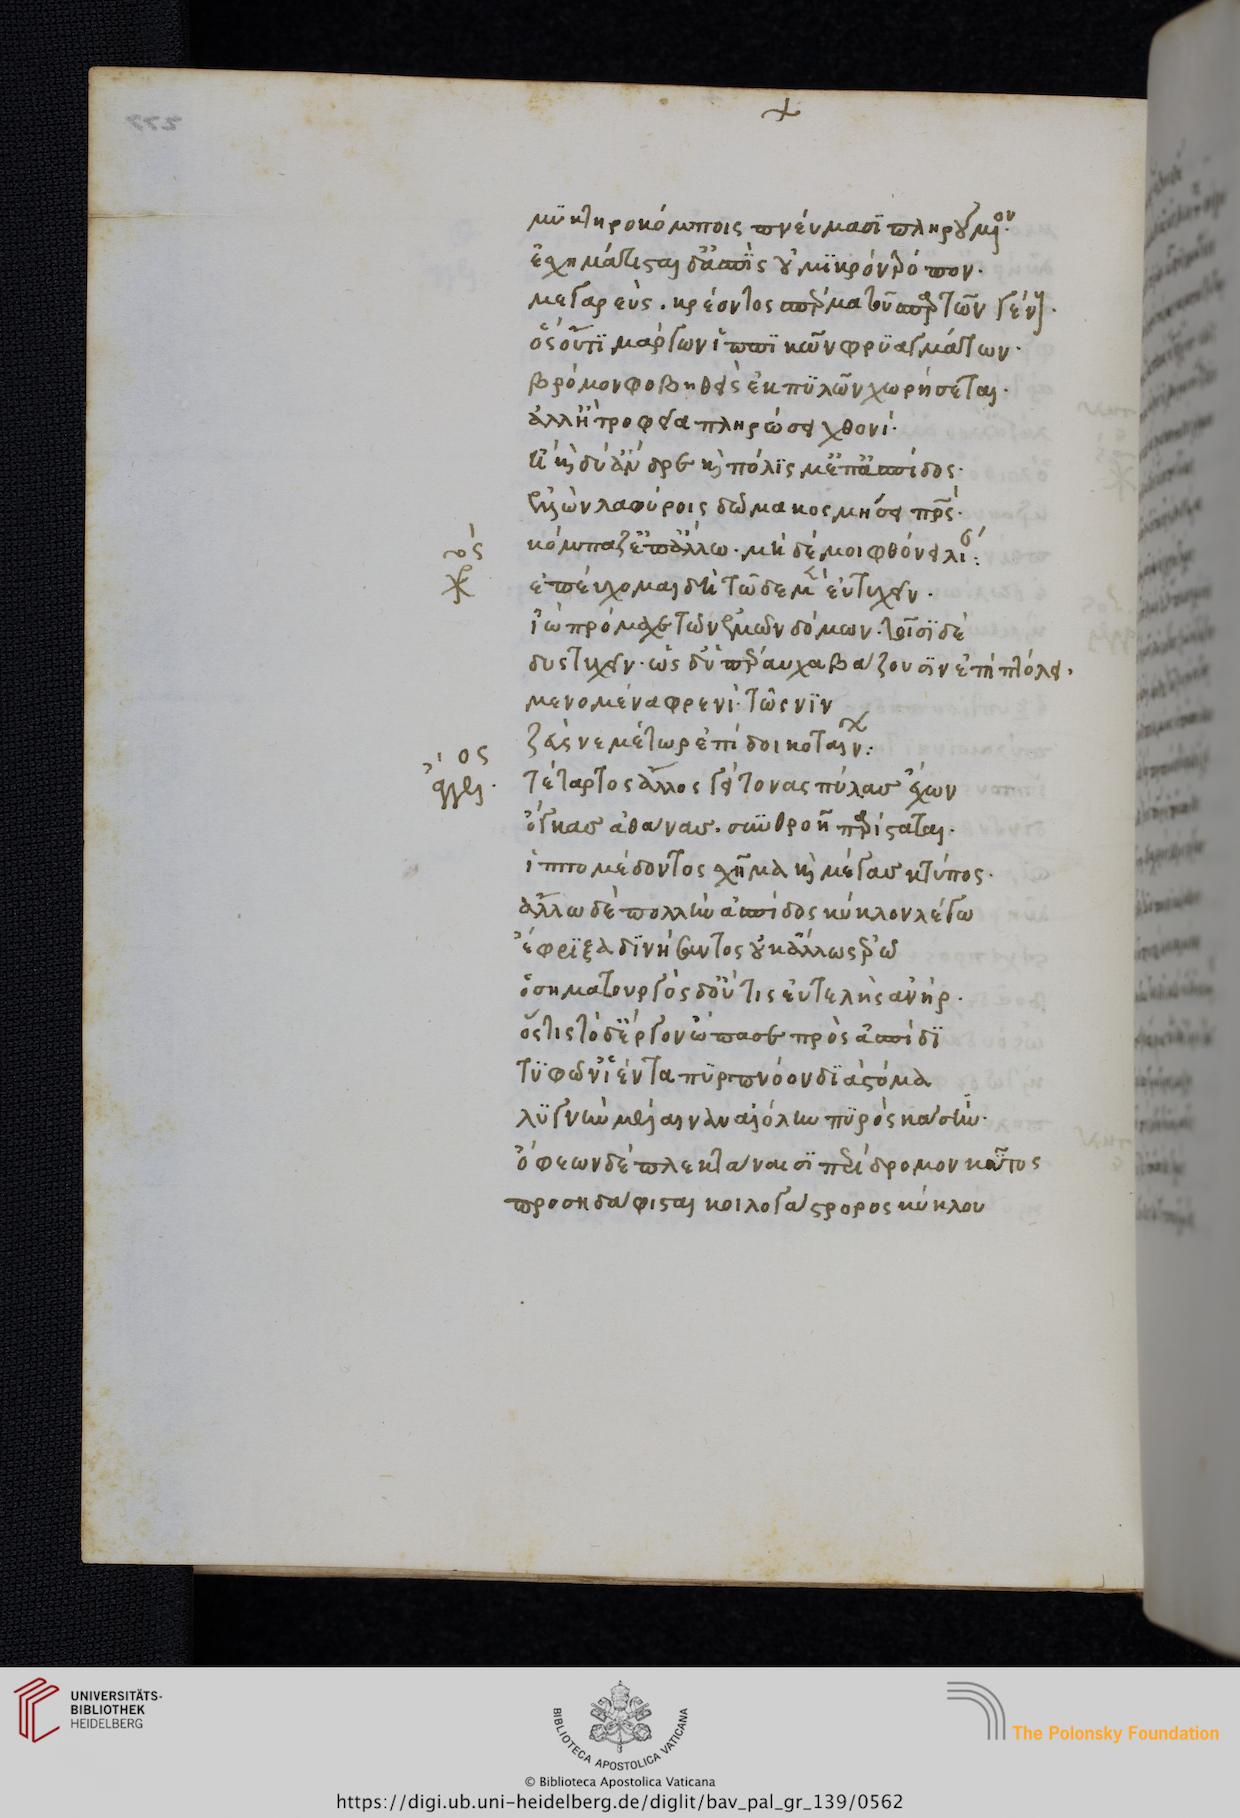 μυκτηροκόμποις πνεύμασι πληρούμενον.
ἐσχημάτισται δ' ἀσπὶς οὐ μικρὸν τρόπον.
μεγαρεὺς. κρέοντος σπέρμα τοῦ σπαρτῶν γένους.
ὃς οὔτι μάργων ἱππικῶν φρυαγμάτων.
βρόμον φοβηθεὶς ἐκ πυλῶν χωρήσεται.
ἀλλ' ἢ τροφεῖα πληρώσει χθονί.
ἢ καὶ δύ' ἄνδρε καὶ πόλισμ' ἐπ' ἀσπίδος.
ἑλὼν λαφύροις δῶμα κοσμήσει πατρός.
κόμπαζ' ἐπ' ἄλλω. μὴ δέ μοι φθόνει λέγων:
ἐπεύχομαι δὴ τῶδε μὲν εὐτυχεῖν.
ἰὼ πρόμαχε τῶν ἐμῶν δόμων. τοῖσι δὲ
δυστυχεῖν. ὡς δ' ὑπέραυχα βάζουσιν ἐπὶ πτόλει.
μενομένα φρενί. τὼς νιν
ζεὺς νεμέτωρ ἐπίδοι κοταίνων:
τέταρτος ἄλλος γείτονας πύλας ἔχων
ὄγκας ἀθάνας. σὺν βοῇ παρίσταται.
ἱππομέδοντος σχῆμα καὶ μέγας κτύπος.
ἅλω δὲ πολλὴν ἀσπίδος κύκλον λέγω
ἔφριξα δινήσαντος οὐκ ἄλλως ἐρῶ
ὁ σηματουργὸς δ' οὔ τις εὐτελὴς ἀνήρ.
ὅστις τόδ' ἔργον ὤπασε πρὸς ἀσπίδι
τυφῶν' ἱέντα πύρπνοον διὰ στόμα
λιγνὺν μέλαιναν αἰόλην πυρὸς κάσιν.
ὄφεων δὲ πλεκτάναισι περίδρομον κύτος
προσηδάφισται κοιλογάστορος κύκλου
UNIVERSITÄTS-
BIBLIOTHEK
HEIDELBERG
BIBLIOTECA APOSTOLICA VATICANA
The Polonsky Foundation
© Biblioteca Apostolica Vaticana
https://digi.ub.uni-heidelberg.de/diglit/bav_pal_gr_139/0562